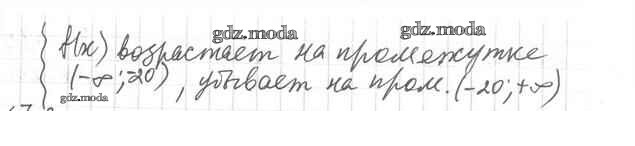 gdz.moda gdz.moda
f(x) возрастает на промежутке
(-∞; -20), убывает на пром. (-20; +∞)
gdz.moda